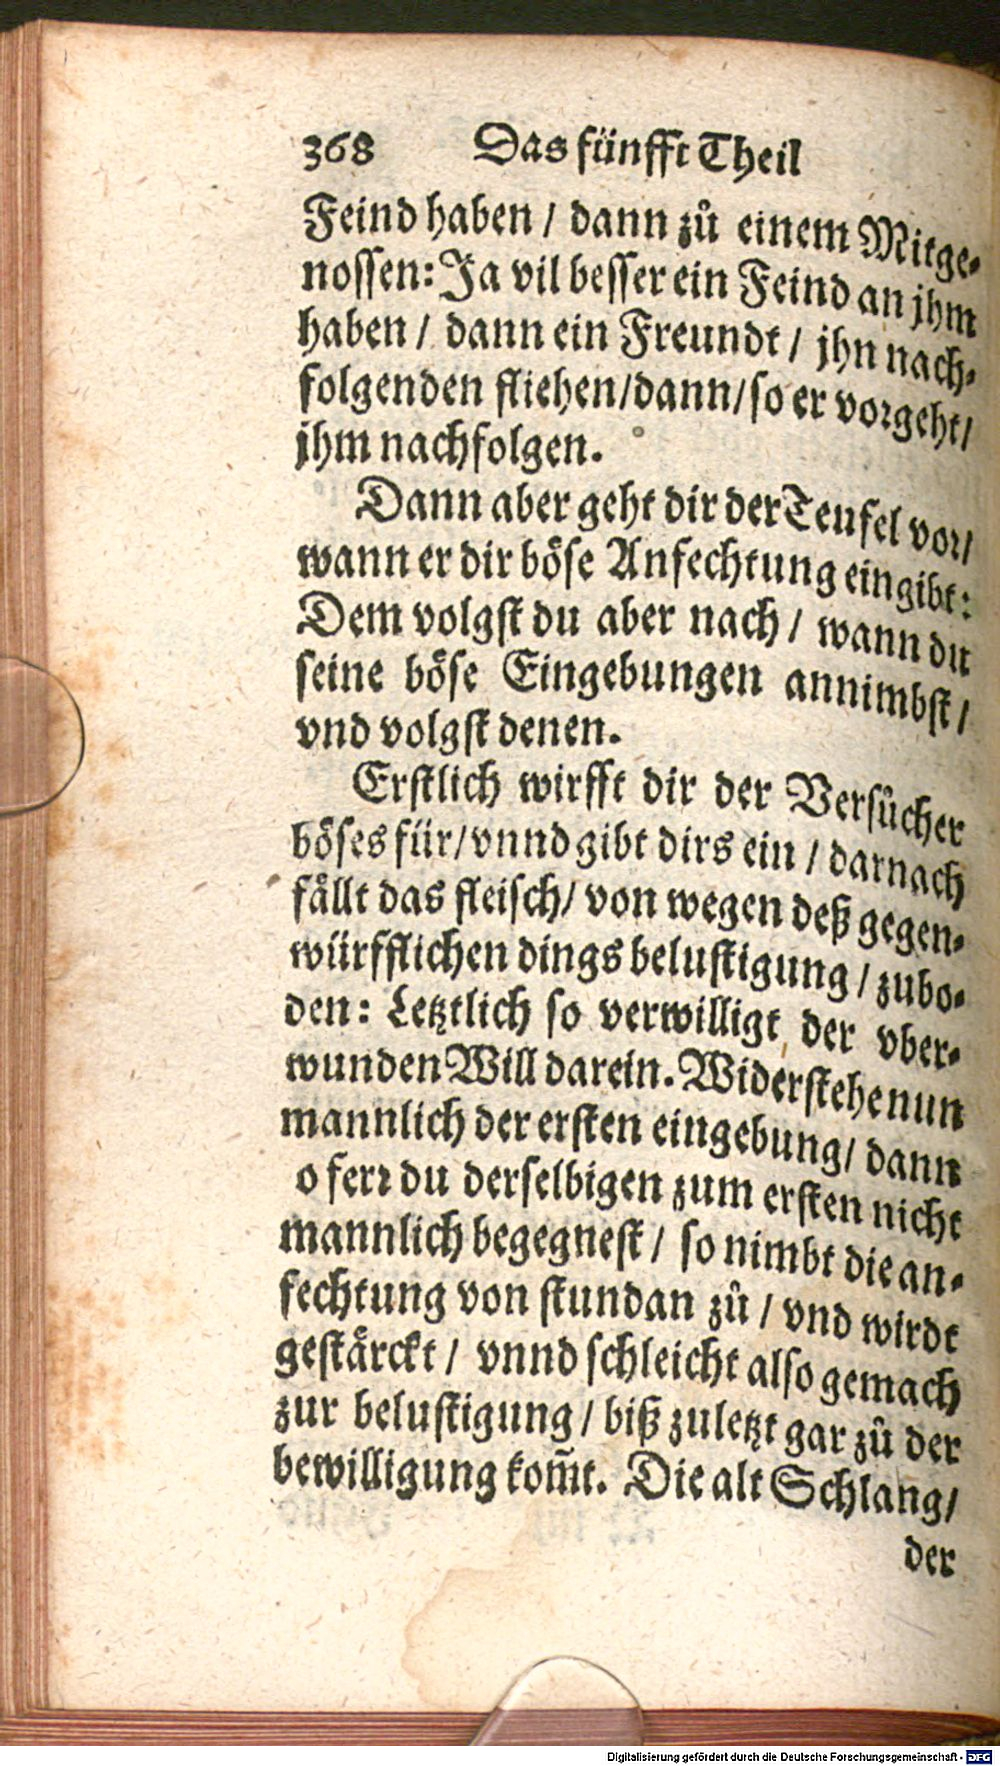 368 Das fünfft Theil
Feind haben / dann zů einem Mitge-
nossen: Ja vil besser ein Feind an jhm
haben / dann ein Freundt / jhn nach-
folgenden fliehen/dann/so er vorgeht/
jhm nachfolgen.
Dann aber geht dir der Teufel vor/
wann er dir böse Anfechtung eingibt:
Dem volgst du aber nach / wann du
seine böse Eingebungen annimbst /
vnd volgst denen.
Erstlich wirfft dir der Versůcher
böses für/vnnd gibt dirs ein / darnach
fällt das fleisch/ von wegen deß gegen-
würfflichen dings belustigung / zubo-
den: Letztlich so verwilligt der vber-
wunden Will darein. Widerstehe nun
mannlich der ersten eingebung/ dann
o ferr du derselbigen zum ersten nicht
mannlich begegnest / so nimbt die an-
fechtung von stundan zů / vnd wirdt
gestärckt / vnnd schleicht also gemach
zur belustigung / biß zuletzt gar zů der
bewilligung kom̃t. Die alt Schlang/
der
Digitalisierung gefördert durch die Deutsche Forschungsgemeinschaft - DFG